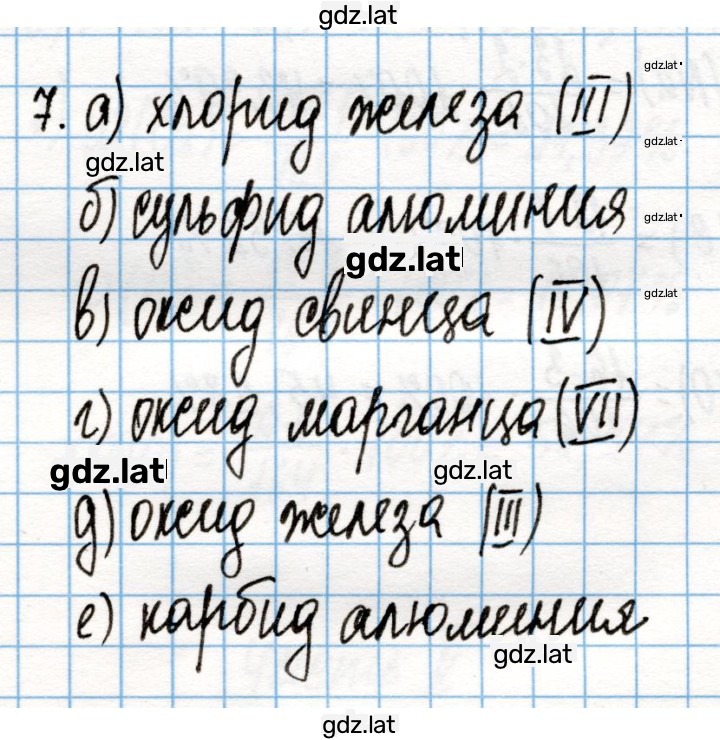 gdz.lat
gdz.lat
7. а) хлорид железа (III)
gdz.lat
gdz.lat
б) сульфид алюминия
gdz.lat
gdz.lat
gdz.lat
в) оксид свинца (IV)
г) оксид марганца (VII)
gdz.lat
gdz.lat
д) оксид железа (III)
е) карбид алюминия
gdz.lat
gdz.lat